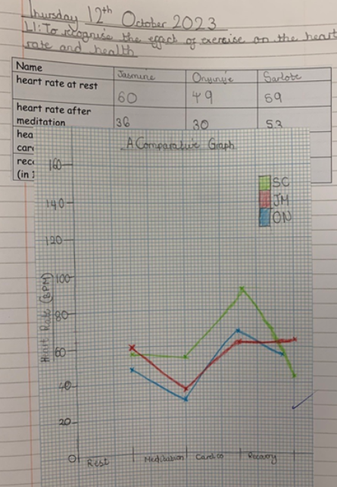 Thursday 12th October 2023
LI: To recognise the effect of exercise on the heart
rate and health
Name Jasmine Sarlote
heart rate at rest 60 49 59
heart rate after
meditation 36 30 53
hea
car
rec
(in
A Comparative Graph
160
140
100
80
60
40
20
0
SC
JM
ON
Heart Rate (BPM)
Rest Meditation Cardio Recovery